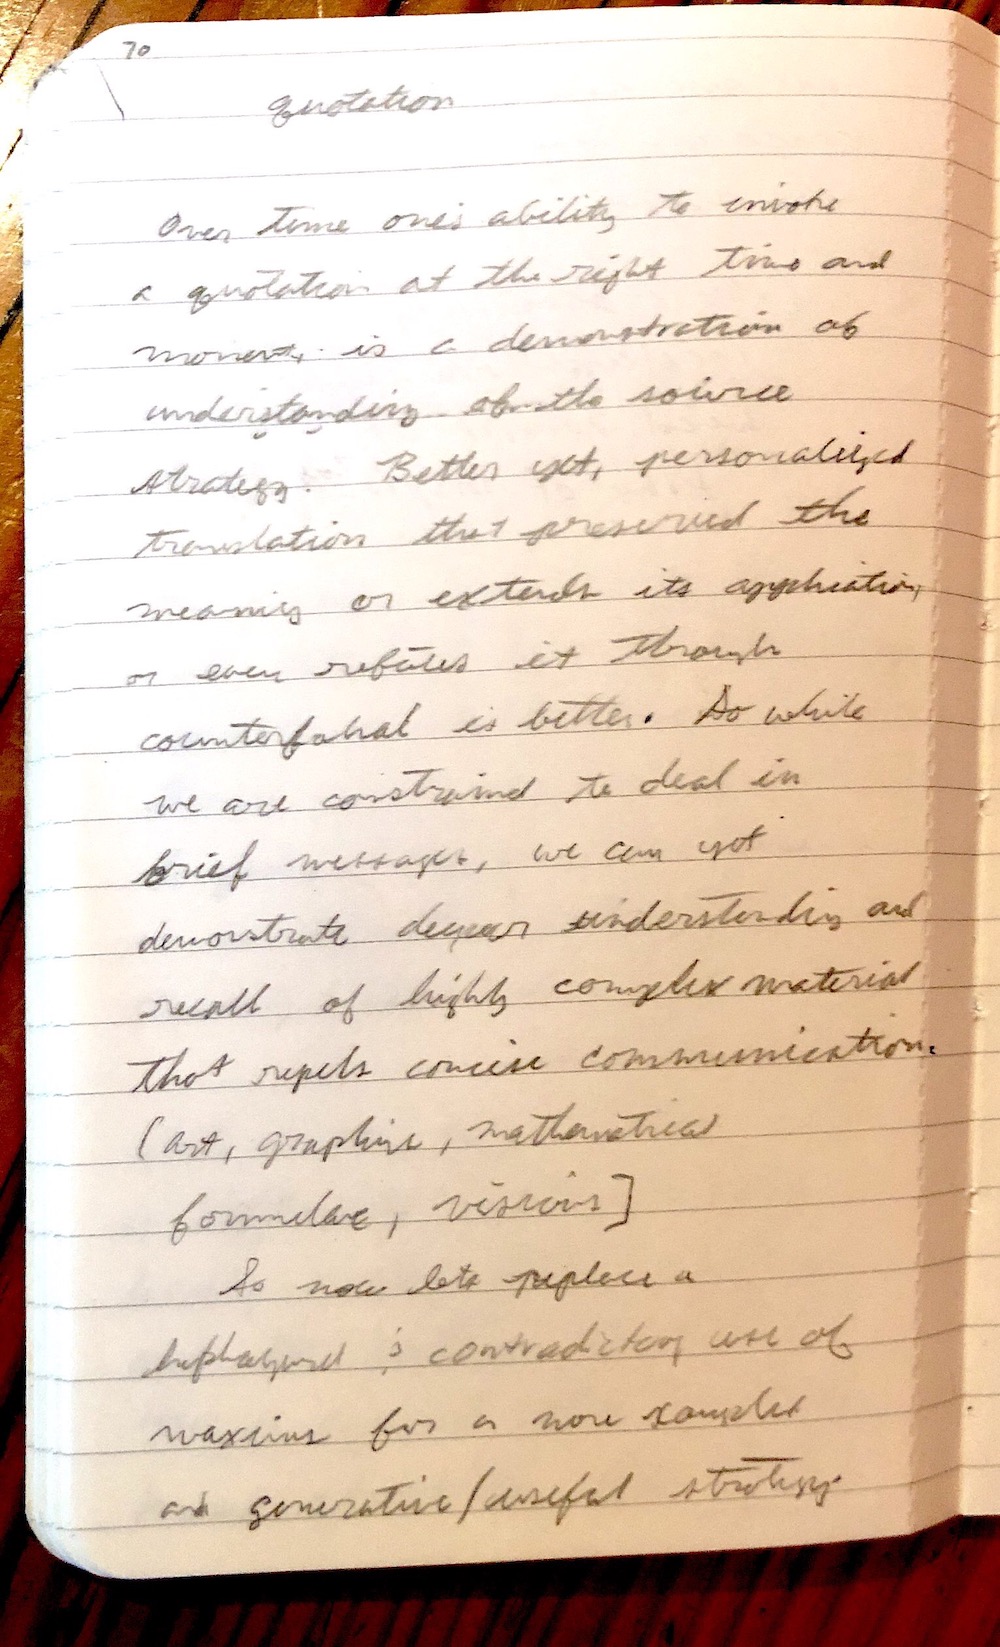 70
quotation
Over time one's ability to invoke
a quotation at the right time and
moment, is a demonstration of
understanding of the soivrce
strategy. Better yet, personalized
translation that preserved the
meaning or extends its application,
or even refutes it through
counterfactual is better. So while
we are constrained to deal in
brief messages, we can yet
demonstrate deeper understanding and
recall of highly complex material
that repels concise communication.
(art, graphics, mathematical
formulae, visions]
So now lets replace a
haphazard & contradictory use of
maxims for a more complex
and generative/useful strategy